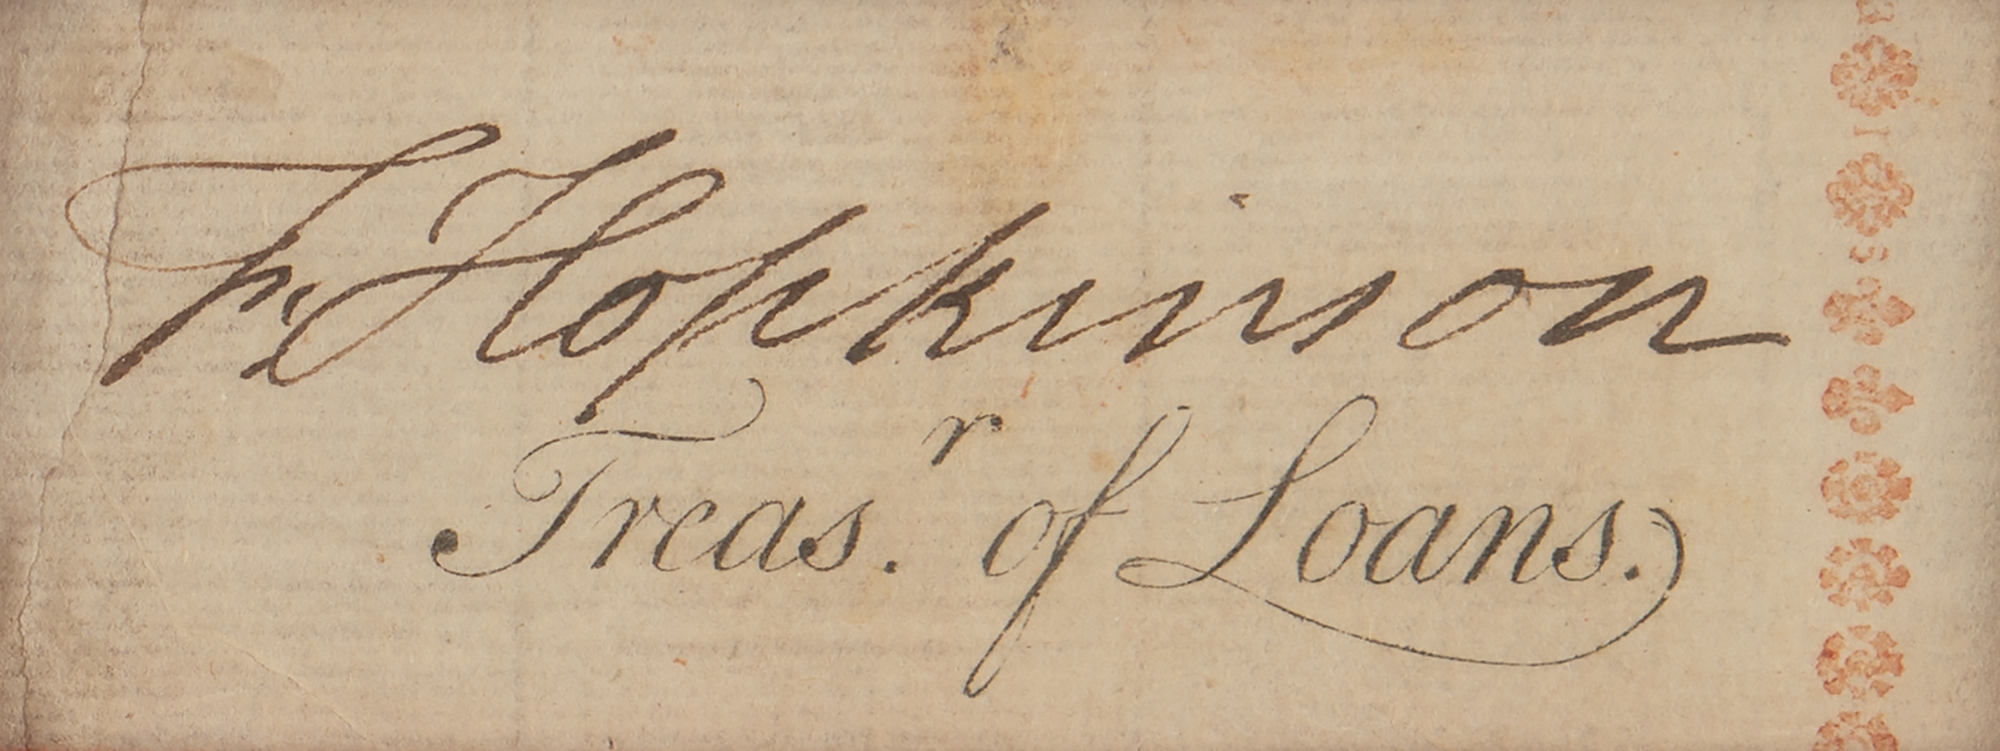 F. Hopkinson
Treas.ʳ of Loans.